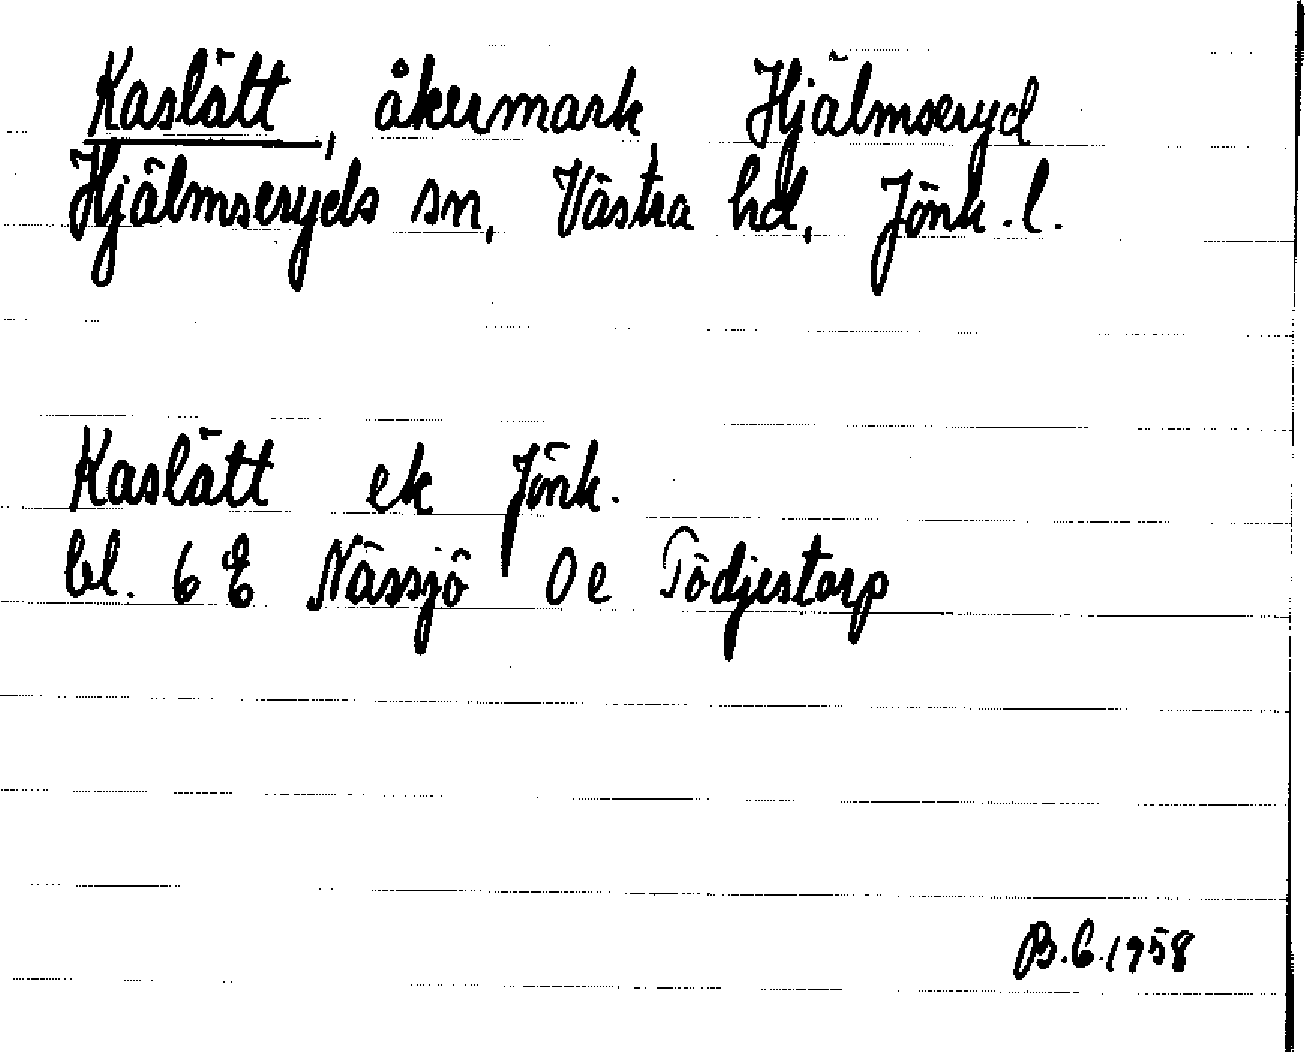 Kaslätt, åkermark, Hjälmseryd
Hjälmseryds sn, Västra hd, Jönk. l.
Kaslätt ek Jönk.
bl. 6 E Nässjö 0 e Tödjestorp
B.G. 1958